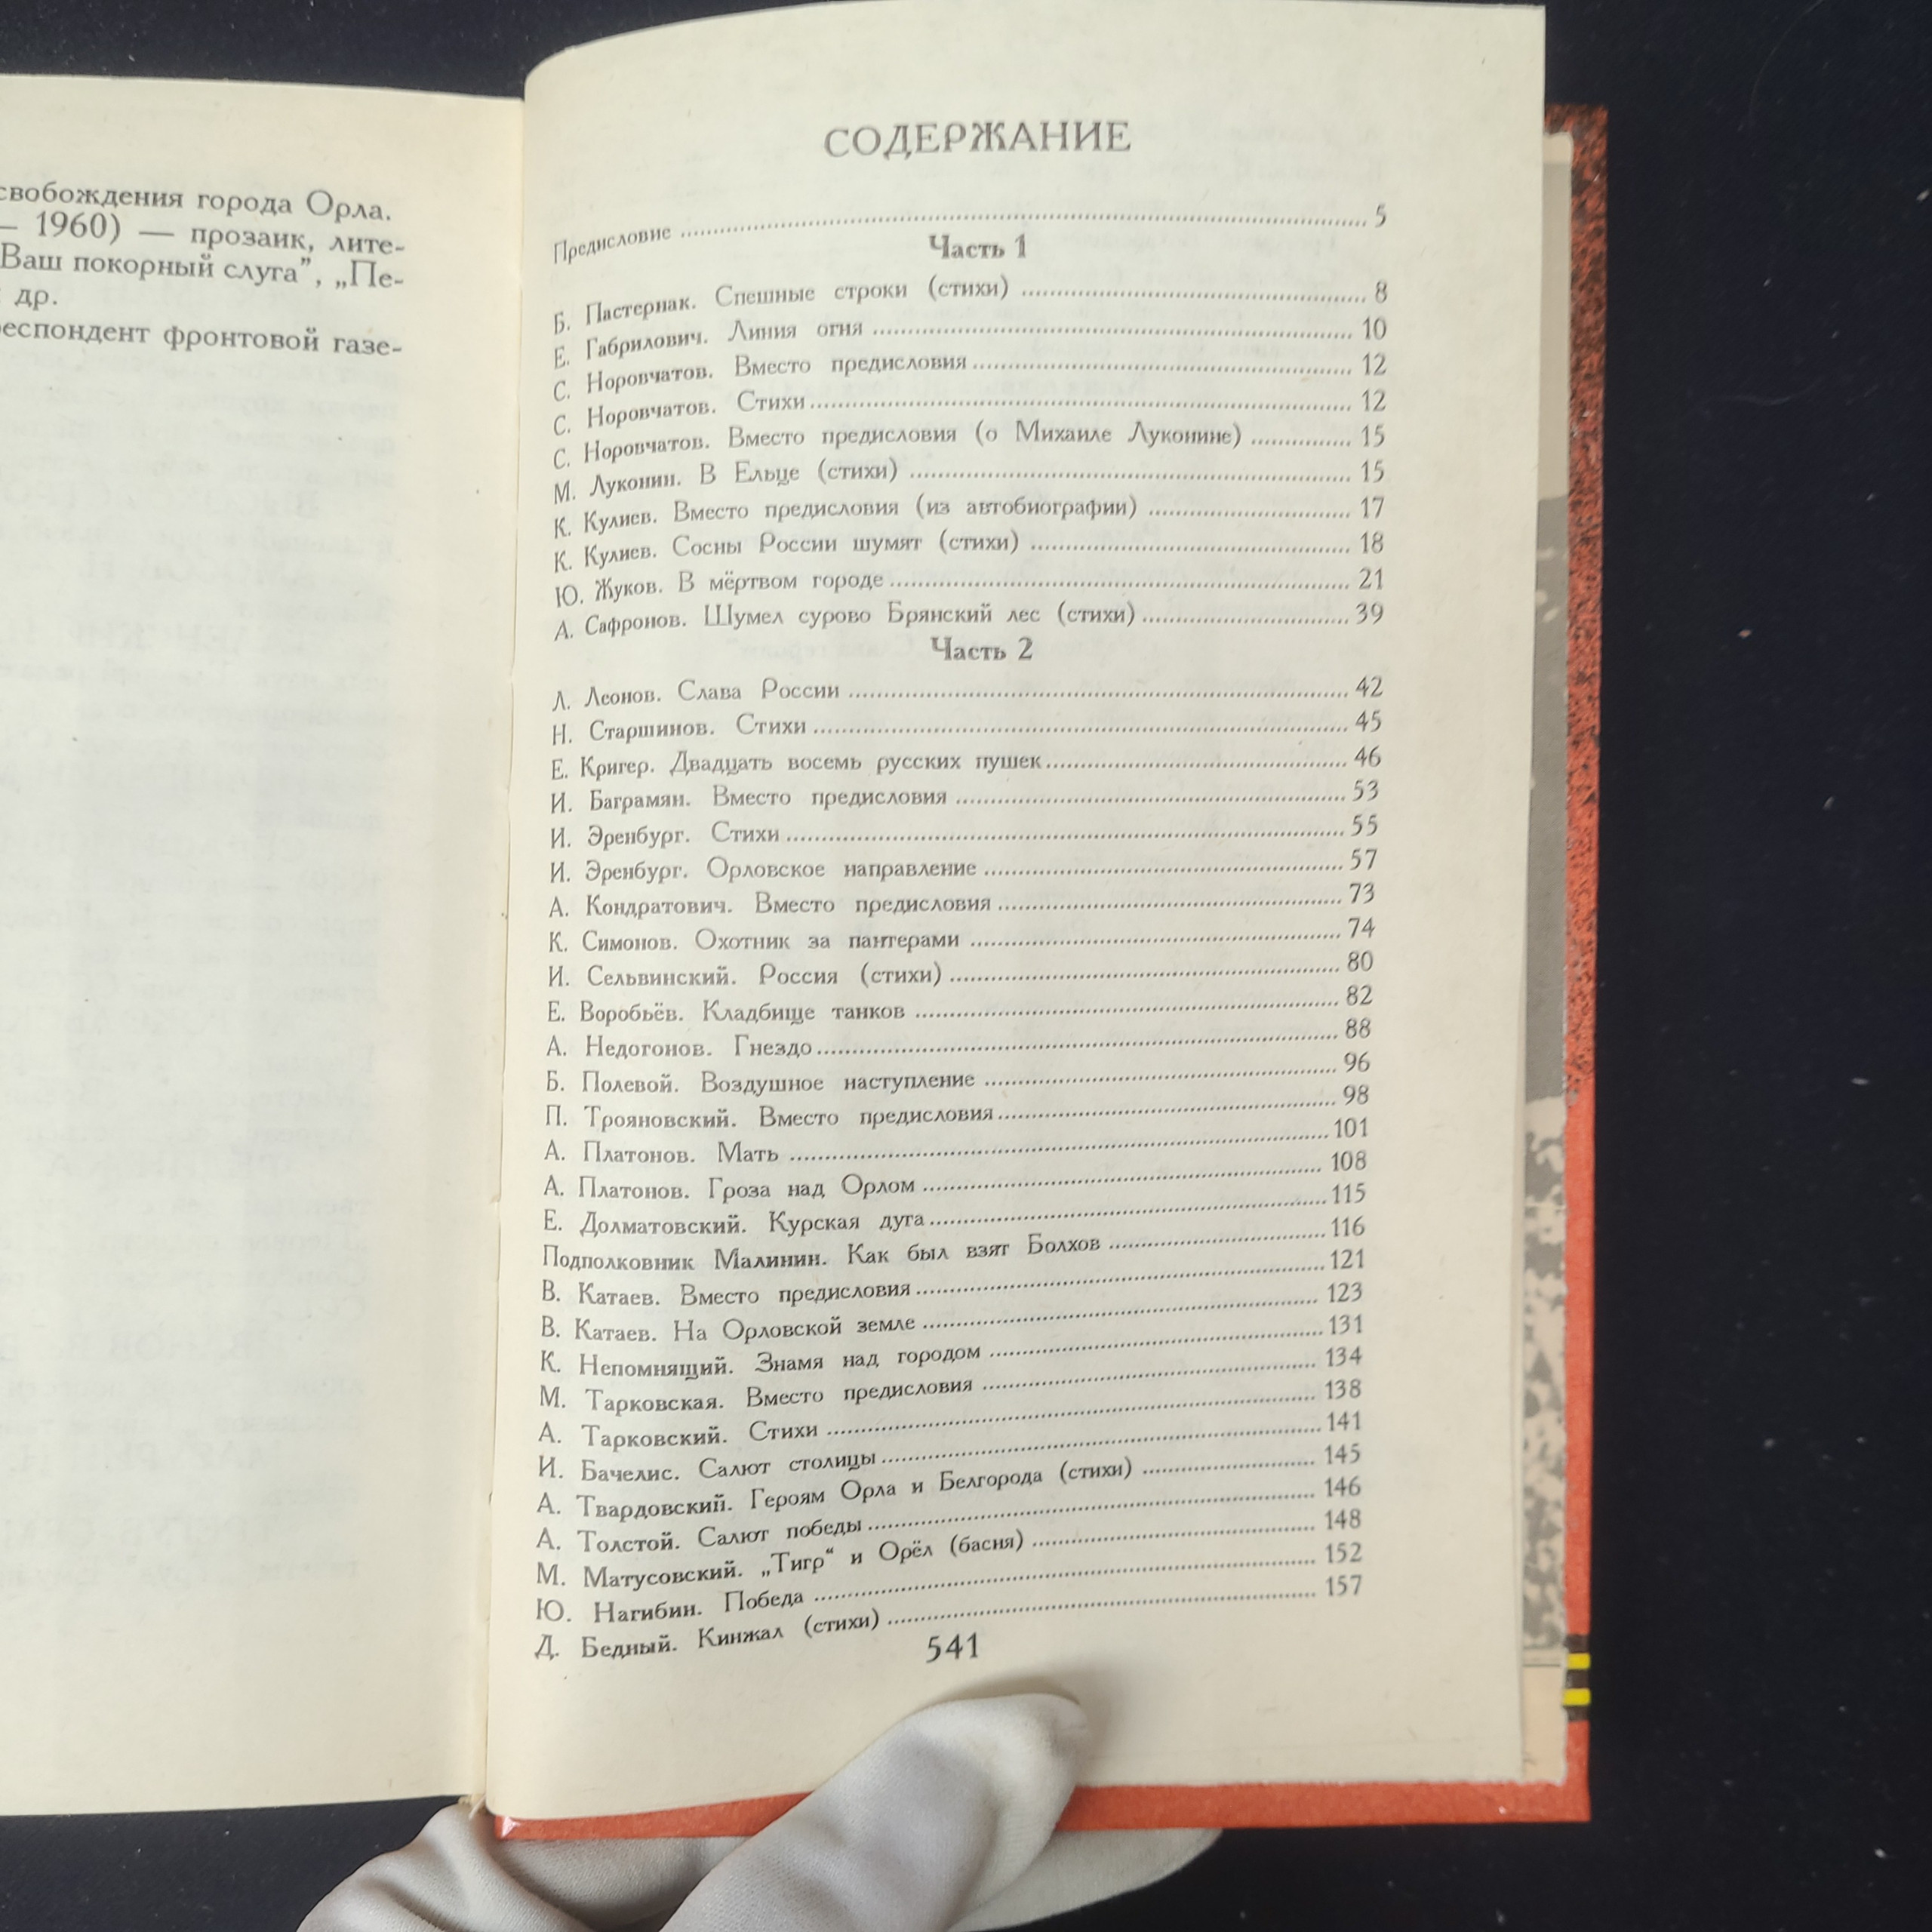 свобождения города Орла.
— 1960) — прозаик, лите-
Ваш покорный слуга”, „Пе-
др.
респондент фронтовой газе-
СОДЕРЖАНИЕ
Предисловие ........ 5
Часть 1
Б. Пастернак. Спешные строки (стихи) ........ 8
Е. Габрилович. Линия огня ........ 10
С. Норовчатов. Вместо предисловия ........ 12
С. Норовчатов. Стихи ........ 12
С. Норовчатов. Вместо предисловия (о Михаиле Луконине) ........ 15
М. Луконин. В Ельце (стихи) ........ 15
К. Кулиев. Вместо предисловия (из автобиографии) ........ 17
К. Кулиев. Сосны России шумят (стихи) ........ 18
Ю. Жуков. В мёртвом городе ........ 21
А. Сафронов. Шумел сурово Брянский лес (стихи) ........ 39
Часть 2
Л. Леонов. Слава России ........ 42
Н. Старшинов. Стихи ........ 45
Е. Кригер. Двадцать восемь русских пушек ........ 46
И. Баграмян. Вместо предисловия ........ 53
И. Эренбург. Стихи ........ 55
И. Эренбург. Орловское направление ........ 57
А. Кондратович. Вместо предисловия ........ 73
К. Симонов. Охотник за пантерами ........ 74
И. Сельвинский. Россия (стихи) ........ 80
Е. Воробьёв. Кладбище танков ........ 82
А. Недогонов. Гнездо ........ 88
Б. Полевой. Воздушное наступление ........ 96
П. Трояновский. Вместо предисловия ........ 98
А. Платонов. Мать ........ 101
А. Платонов. Гроза над Орлом ........ 108
Е. Долматовский. Курская дуга ........ 115
Подполковник Малинин. Как был взят Болхов ........ 116
В. Катаев. Вместо предисловия ........ 121
В. Катаев. На Орловской земле ........ 123
К. Непомнящий. Знамя над городом ........ 131
М. Тарковская. Вместо предисловия ........ 134
А. Тарковский. Стихи ........ 138
И. Бачелис. Салют столицы ........ 141
А. Твардовский. Героям Орла и Белгорода (стихи) ........ 145
А. Толстой. Салют победы ........ 146
М. Матусовский. „Тигр“ и Орёл (басня) ........ 148
Ю. Нагибин. Победа ........ 152
Д. Бедный. Кинжал (стихи) ........ 157
541